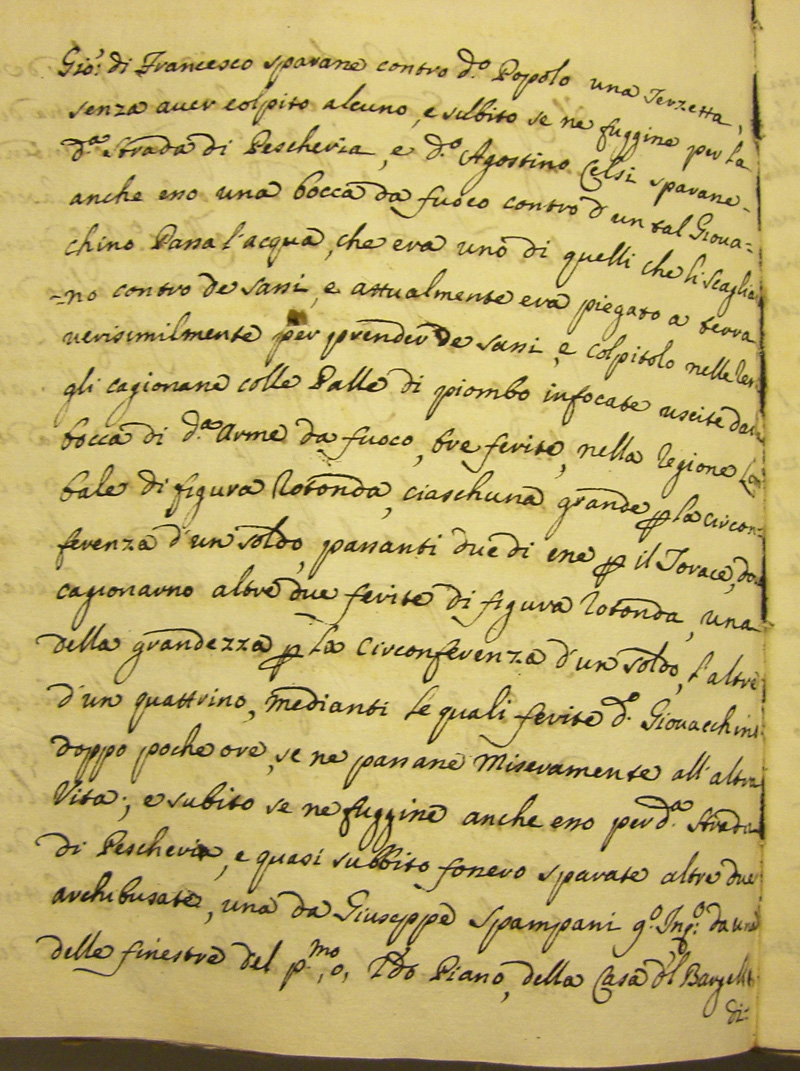 Gio: di Francesco sparane contro d.o Popolo una Terzetta,
senza auer colpito alcuno, e subito se ne fuggine per la
d.a Strada di Pescheria, e d.o Agostino Celsi sparane
anche eno una bocca da fuoco contro d'un tal Gioua=
chino Passa l'acqua, che era uno di quelli che li scaglia
=no contro de sassi, e attualmente era piegato a terra
uerisimilmente per prender de sassi, e colpitolo nelle
gli cagionane colle Palle di piombo infocate uscite dalla
bocca di d.a Arme da fuoco, tre ferite, nella regione Lom
bale di figura rotonda, ciaschuna grande p la circon=
ferenza d'un soldo, passanti due di ene p il Torace, doue
cagionarno altre due ferite di figura rotonda, una
della grandezza p la circonferenza d'un soldo, l'altre
d'un quattrino, medianti le quali ferite d.o Giouacchino
doppo poche ore, se ne passane miseramente all'altra
Vita; e subito se ne fuggine anche eno per d.a Strada
di Pescheria, e quasi subbito fonero sparate altre due
archibusate, una da Giuseppe Spampani g.o Inf.o da una
delle finestre del p.mo, o, 2do Piano, della Casa d'l Bargello
di